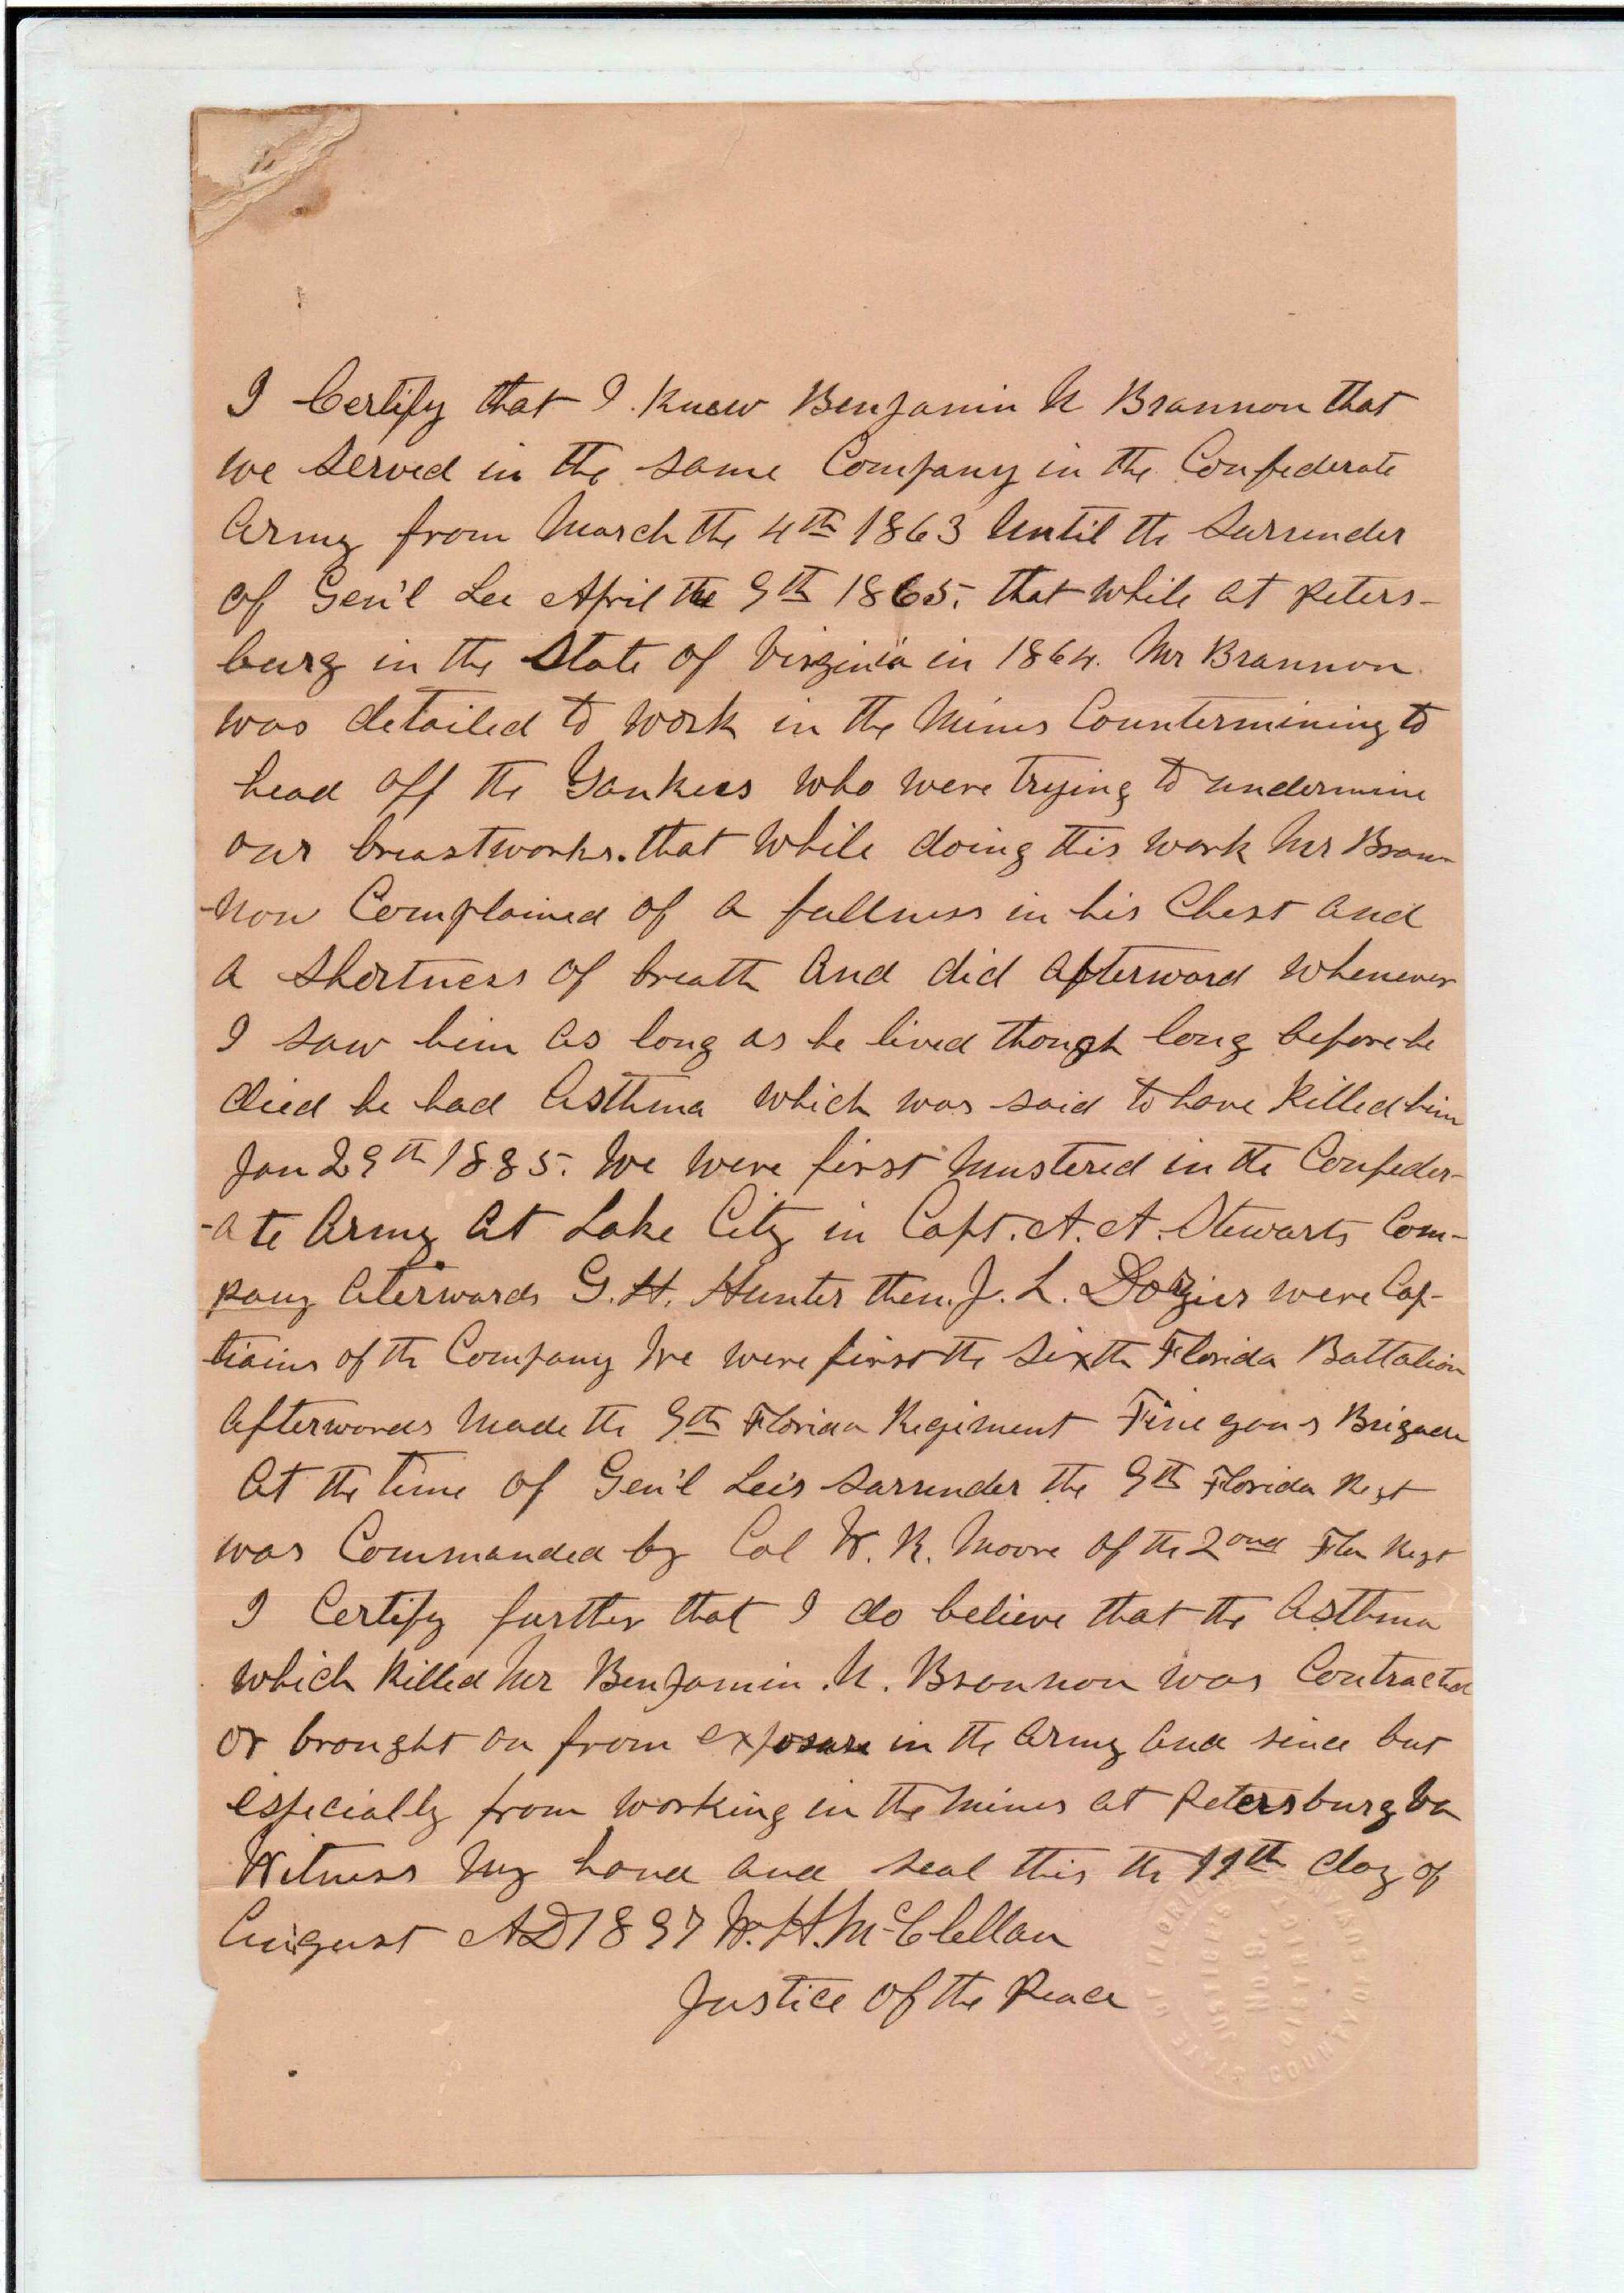 I Certify that I Knew Benjamin N Brannon that
we served in the same Company in the Confederate
Army from March the 4th 1863 Until the Surrender
of Gen'l Lee April the 9th 1865. that while at Peters-
burg in the State of Virginia in 1864. Mr Brannon
was detailed to work in the Mines Countermining to
head off the Yankees who were trying to undermine
our breastworks. that while doing this work Mr Bran-
-non Complained of a fullness in his Chest and
a Shortness of breath and did afterward whenever
I saw him as long as he lived though long before he
died he had Asthma which was said to have Killed him
Jan 29th 1885. We were first Mustered in the Confeder-
-ate Army at Lake City in Capt. A. A. Stewarts Com-
pany Aterwards G. H. Hunter then J. L. Dozier were Cap-
tiains of the Company We were first the Sixth Florida Battalion
Afterwards Made the 9th Florida Regiment Finegans Brigade
At the time of Gen'l Lee's Surrender the 9th Florida Regt
was Commanded by Col W. R. Moore of the 2ond Fla Regt
I Certify further that I do believe that the Asthma
which Killed Mr Benjamin. N. Brannon was Contracted
or brought on from exposure in the Army and since but
especially from working in the Mines at Petersburg Va
Witness My hand and seal this the 11th day of
August AD 1897 W. H. McClellan
Justice of the Peace
STATE OF FLORIDA
JUSTICES
No. 9.
DISTRICT
COUNTY OF